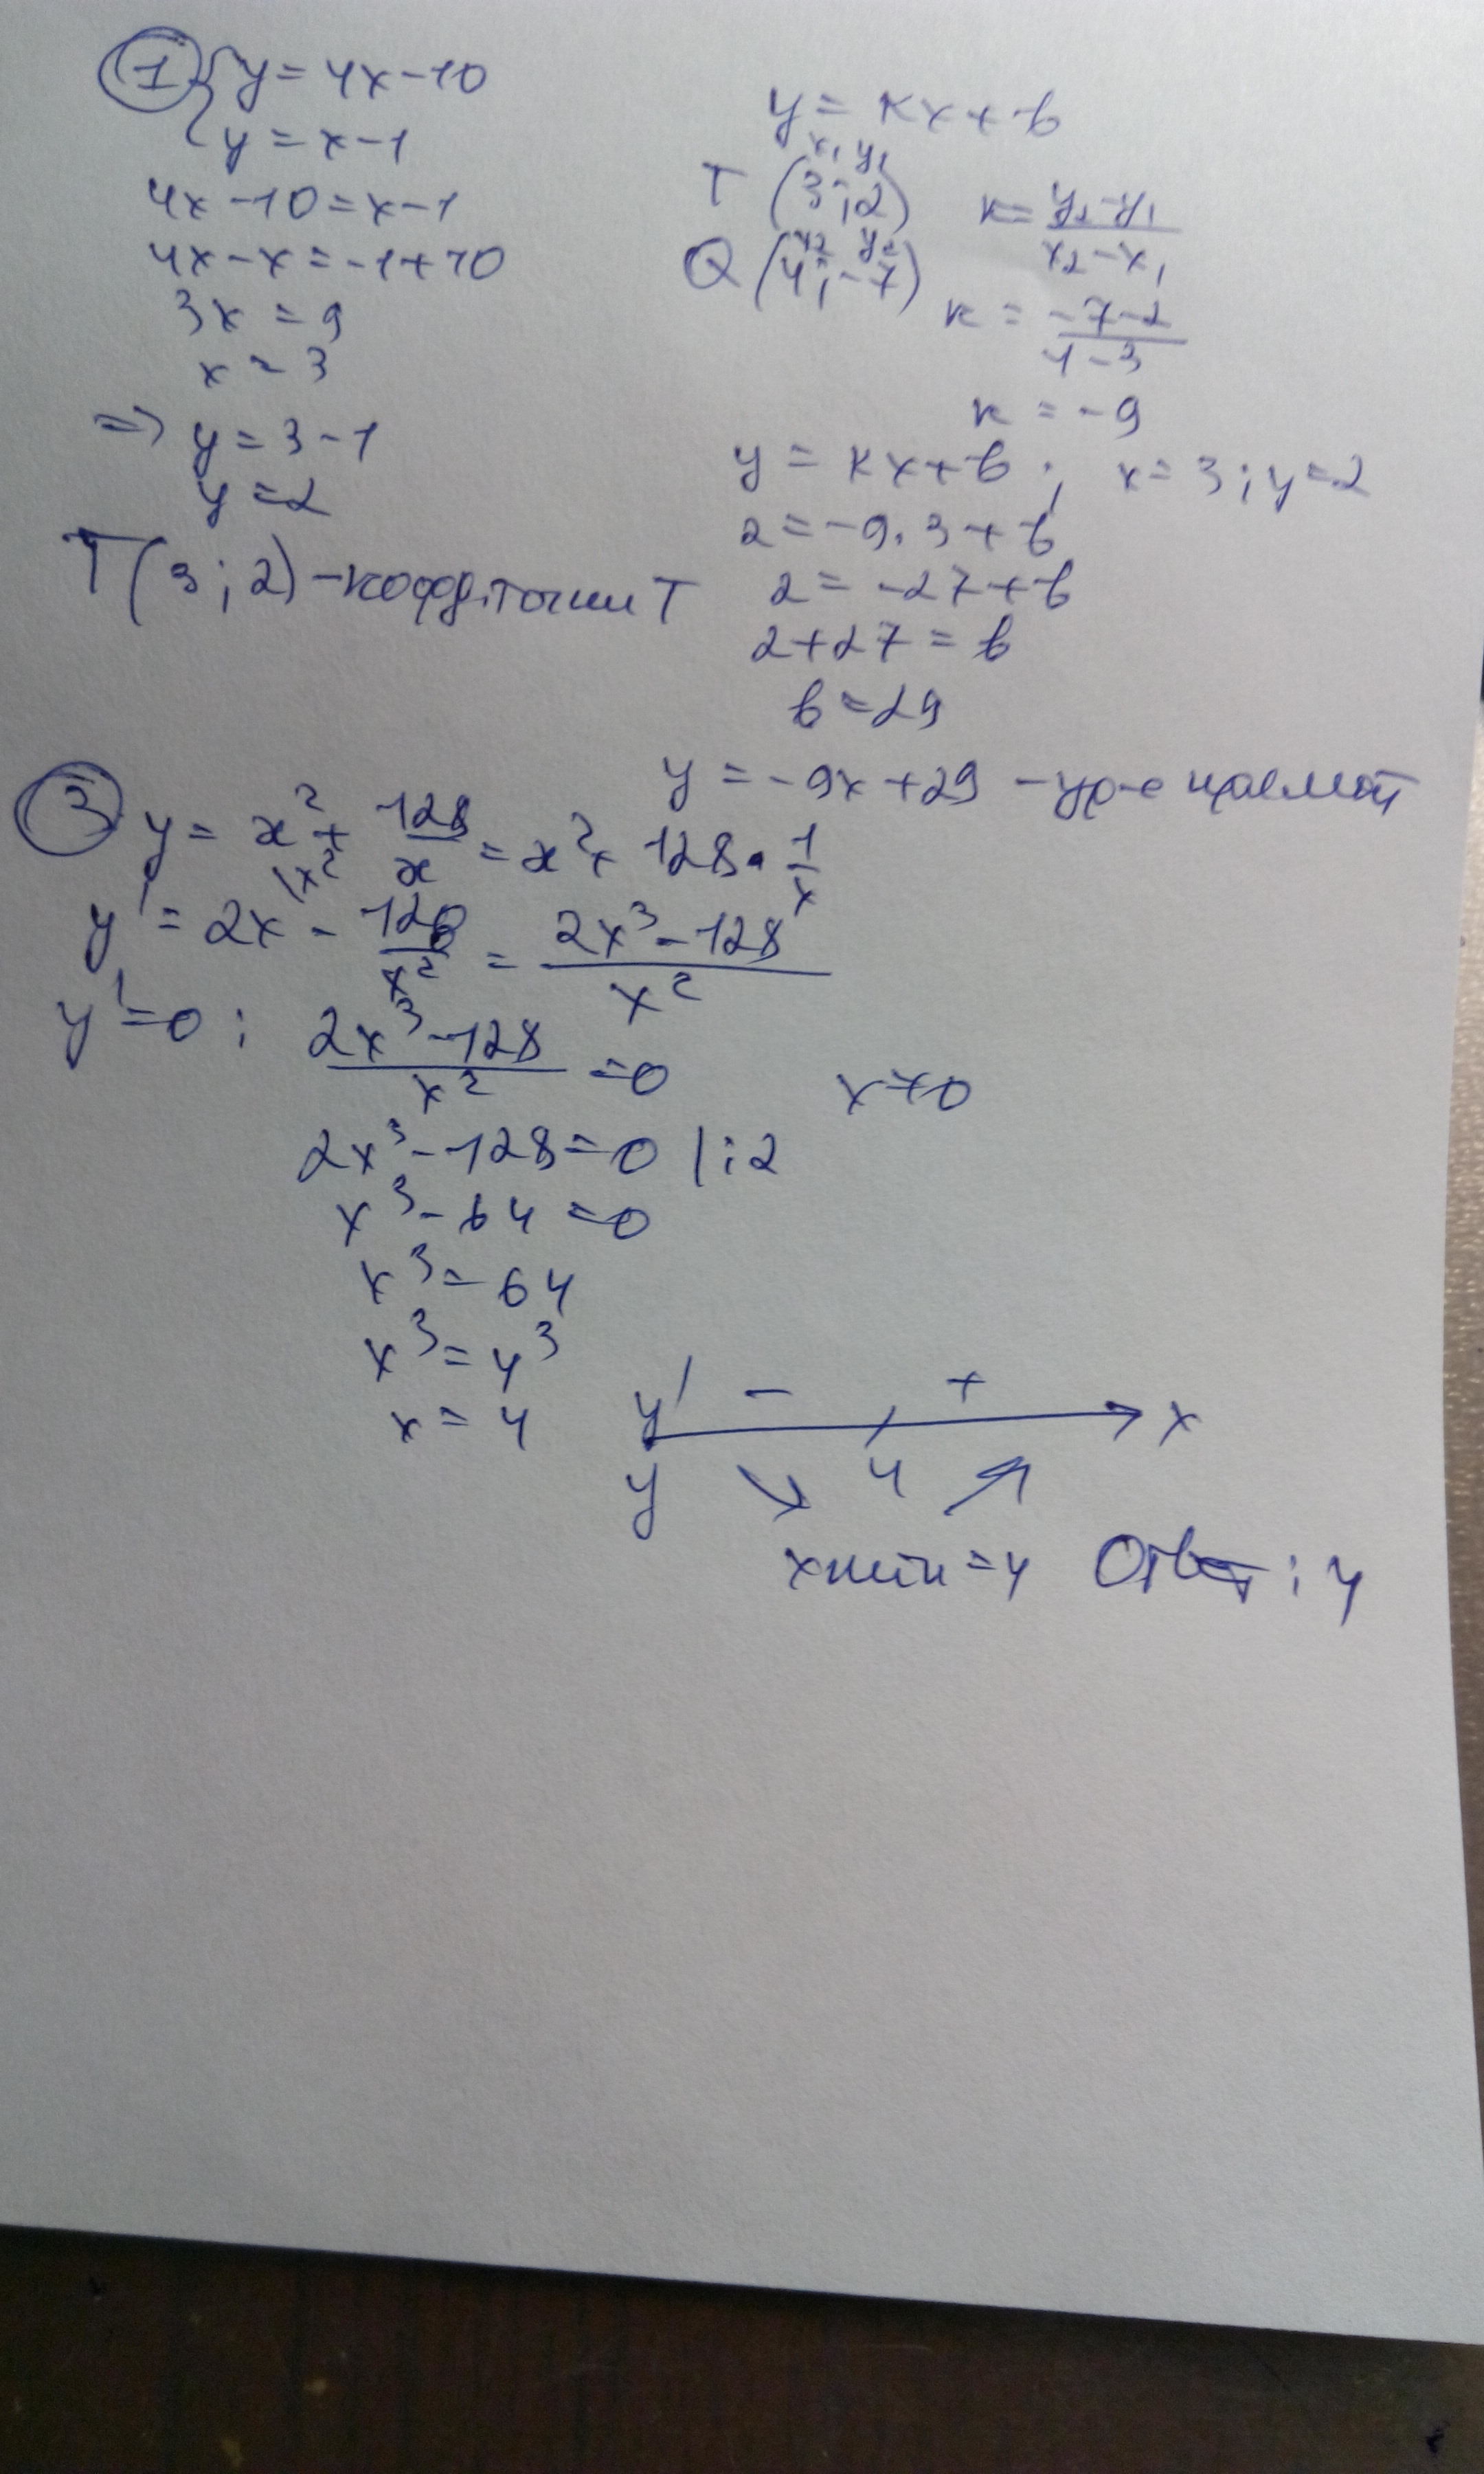 1 { y = 4x - 10
y = x - 1
4x - 10 = x - 1
4x - x = -1 + 10
3x = 9
x = 3
=> y = 3 - 1
y = 2
T (3 ; 2) - коорд. точки T
y = kx + b
x₁ y₁
T (3 ; 2)
x₂ y₂
Q (4 ; -7)
k = (y₂ - y₁)/(x₂ - x₁)
k = (-7 - 2)/(4 - 3)
k = -9
y = kx + b ; x = 3 ; y = 2
2 = -9 . 3 + b
2 = -27 + b
2 + 27 = b
b = 29
y = -9x + 29 - ур-е прямой
3 y = x² + 128/x = x² + 128 · 1/x
y' = 2x - 128/x² = (2x³ - 128)/x²
y' = 0 ; (2x³ - 128)/x² = 0 x ≠ 0
2x³ - 128 = 0 | : 2
x³ - 64 = 0
x³ = 64
x³ = 4³
x = 4
y' - + x
y 4
xmin = 4 Ответ : 4